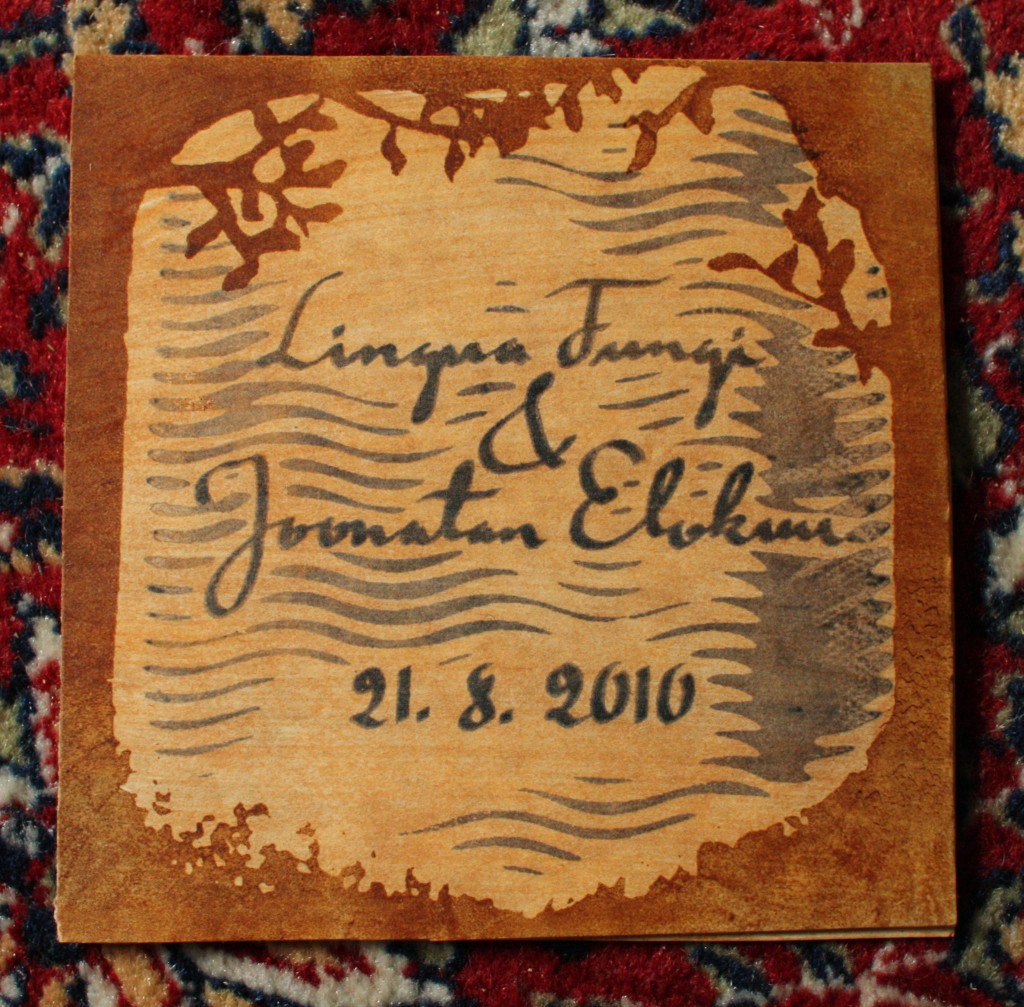 Lingua Fungi
&
Joonatan Elokuu
21. 8. 2010